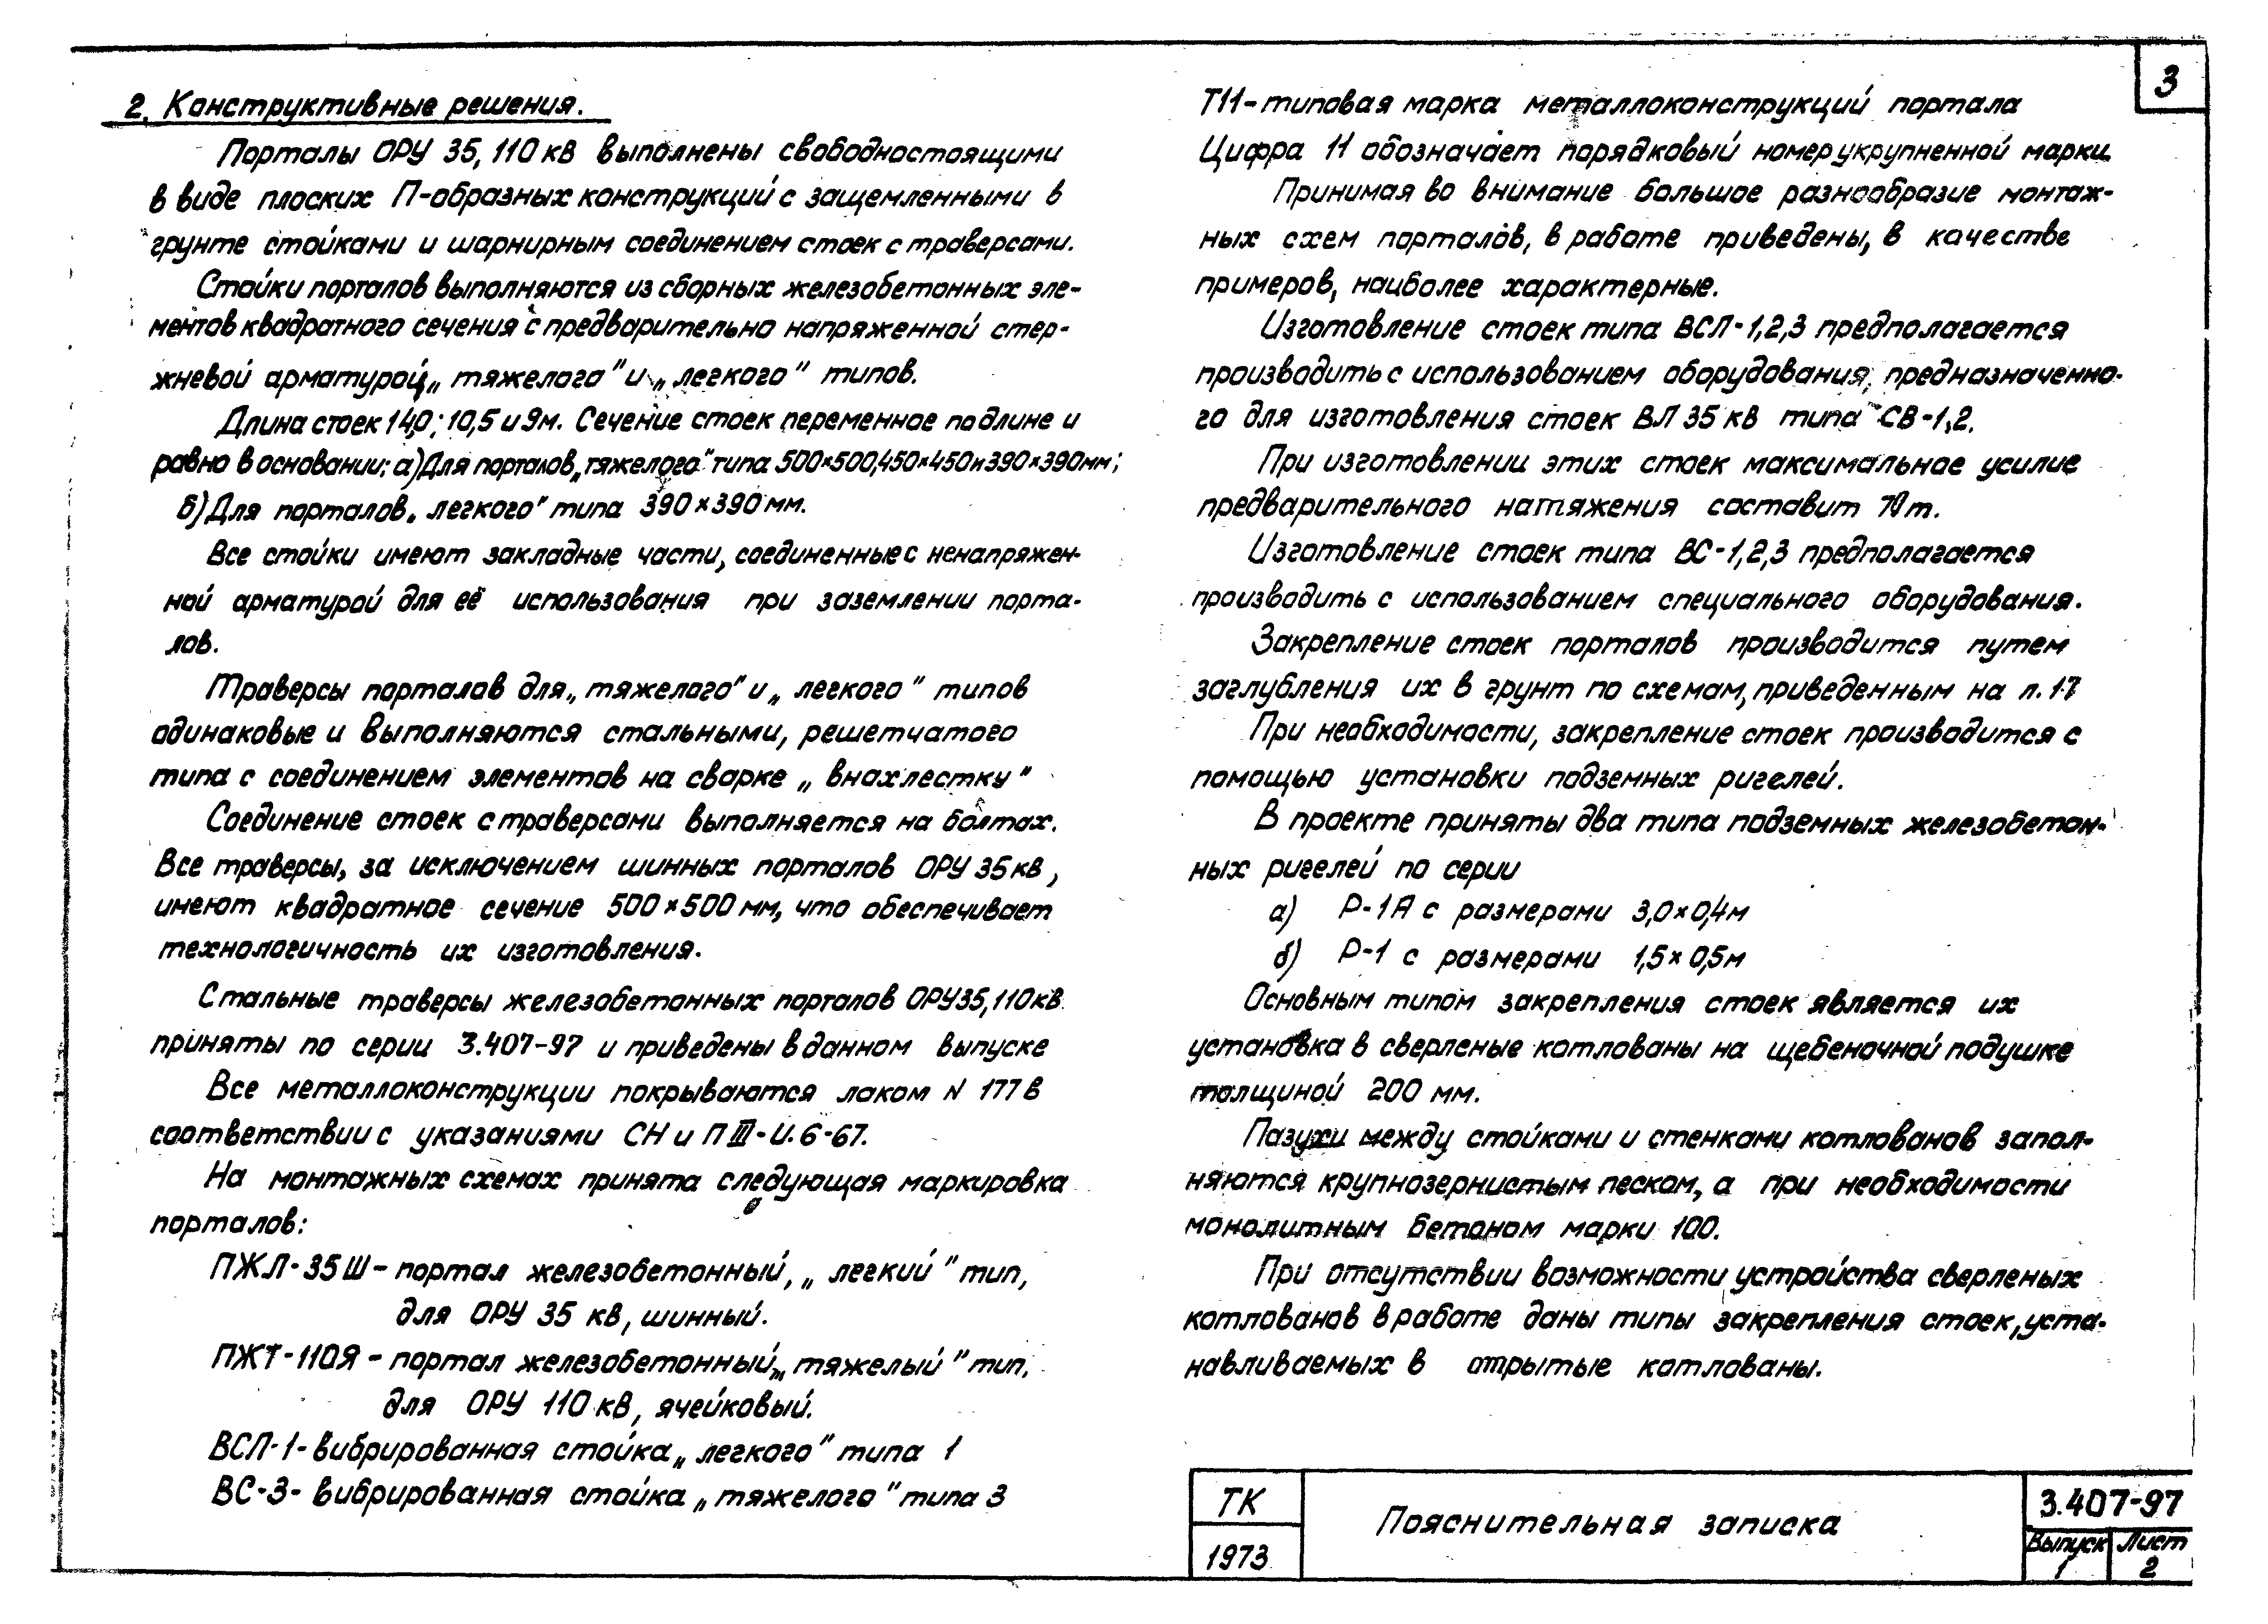 3
2. Конструктивные решения.
Порталы ОРУ 35, 110 кВ выполнены свободностоящими
в виде плоских П-образных конструкций с защемленными в
грунте стойками и шарнирным соединением стоек с траверсами.
Стойки порталов выполняются из сборных железобетонных эле-
ментов квадратного сечения с предварительно напряженной стер-
жневой арматурой „тяжелого" и „легкого" типов.
Длина стоек 14,0; 10,5 и 9м. Сечение стоек переменное по длине и
равно в основании: а) Для порталов „тяжелого" типа 500×500, 450×450 и 390×390мм;
б) Для порталов „легкого" типа 390×390 мм.
Все стойки имеют закладные части, соединенные с ненапряжен-
ной арматурой для её использования при заземлении порта-
лов.
Траверсы порталов для „тяжелого" и „легкого" типов
одинаковые и выполняются стальными, решетчатого
типа с соединением элементов на сварке „внахлестку"
Соединение стоек с траверсами выполняется на болтах.
Все траверсы, за исключением шинных порталов ОРУ 35 кВ,
имеют квадратное сечение 500×500 мм, что обеспечивает
технологичность их изготовления.
Стальные траверсы железобетонных порталов ОРУ 35, 110 кВ
приняты по серии 3.407-97 и приведены в данном выпуске
Все металлоконструкции покрываются лаком N 177 в
соответствии с указаниями СН и П III-И.6-67.
На монтажных схемах принята следующая маркировка
порталов:
ПЖЛ-35Ш - портал железобетонный, „легкий" тип,
для ОРУ 35 кВ, шинный.
ПЖТ-110Я - портал железобетонный, „тяжелый" тип,
для ОРУ 110 кВ, ячейковый.
ВСЛ-1 - вибрированная стойка „легкого" типа 1
ВС-3 - вибрированная стойка „тяжелого" типа 3
Т11 - типовая марка металлоконструкций портала
Цифра 11 обозначает порядковый номер укрупненной марки
Принимая во внимание большое разнообразие монтаж-
ных схем порталов, в работе приведены, в качестве
примеров, наиболее характерные.
Изготовление стоек типа ВСЛ-1,2,3 предполагается
производить с использованием оборудования, предназначенно-
го для изготовления стоек ВЛ 35 кВ типа СВ-1,2.
При изготовлении этих стоек максимальное усилие
предварительного натяжения составит 70 т.
Изготовление стоек типа ВС-1,2,3 предполагается
производить с использованием специального оборудования.
Закрепление стоек порталов производится путем
заглубления их в грунт по схемам, приведенным на л. 17
При необходимости, закрепление стоек производится с
помощью установки подземных ригелей.
В проекте приняты два типа подземных железобетон-
ных ригелей по серии
а) Р-1А с размерами 3,0×0,4м
б) Р-1 с размерами 1,5×0,5м
Основным типом закрепления стоек является их
установка в сверленые котлованы на щебеночной подушке
толщиной 200 мм.
Пазухи между стойками и стенками котлованов запол-
няются крупнозернистым песком, а при необходимости
монолитным бетоном марки 100.
При отсутствии возможности устройства сверленых
котлованов в работе даны типы закрепления стоек, уста-
навливаемых в отрытые котлованы.
ТК
1973
Пояснительная записка
3.407-97
Выпуск Лист
1 2